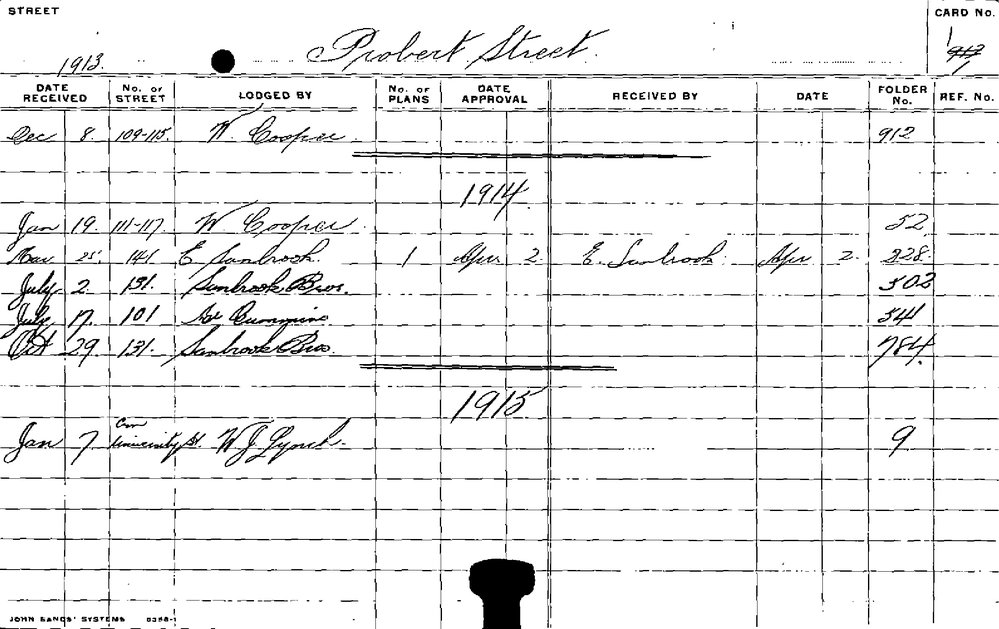 STREET Probert Street. CARD No.
1913. 1
DATE RECEIVED No. OF STREET LODGED BY No. OF PLANS DATE APPROVAL RECEIVED BY DATE FOLDER No. REF. No.
Dec 8. 109-115. W. Cooper. 912
1914
Jan 19. 111-117. W Cooper. 52.
Mar 25. 141 E Sambrook. 1 Apr 2. E. Sambrook. Apr 2. 228.
July 2. 131. Sambrook Bros. 502
July 17. 101 Cummins 541
Oct 29. 131. Sambrook Bros. 784.
1915
Jan 7. Cnr University St. W J Lynch. 9
JOHN SANDS' SYSTEMS